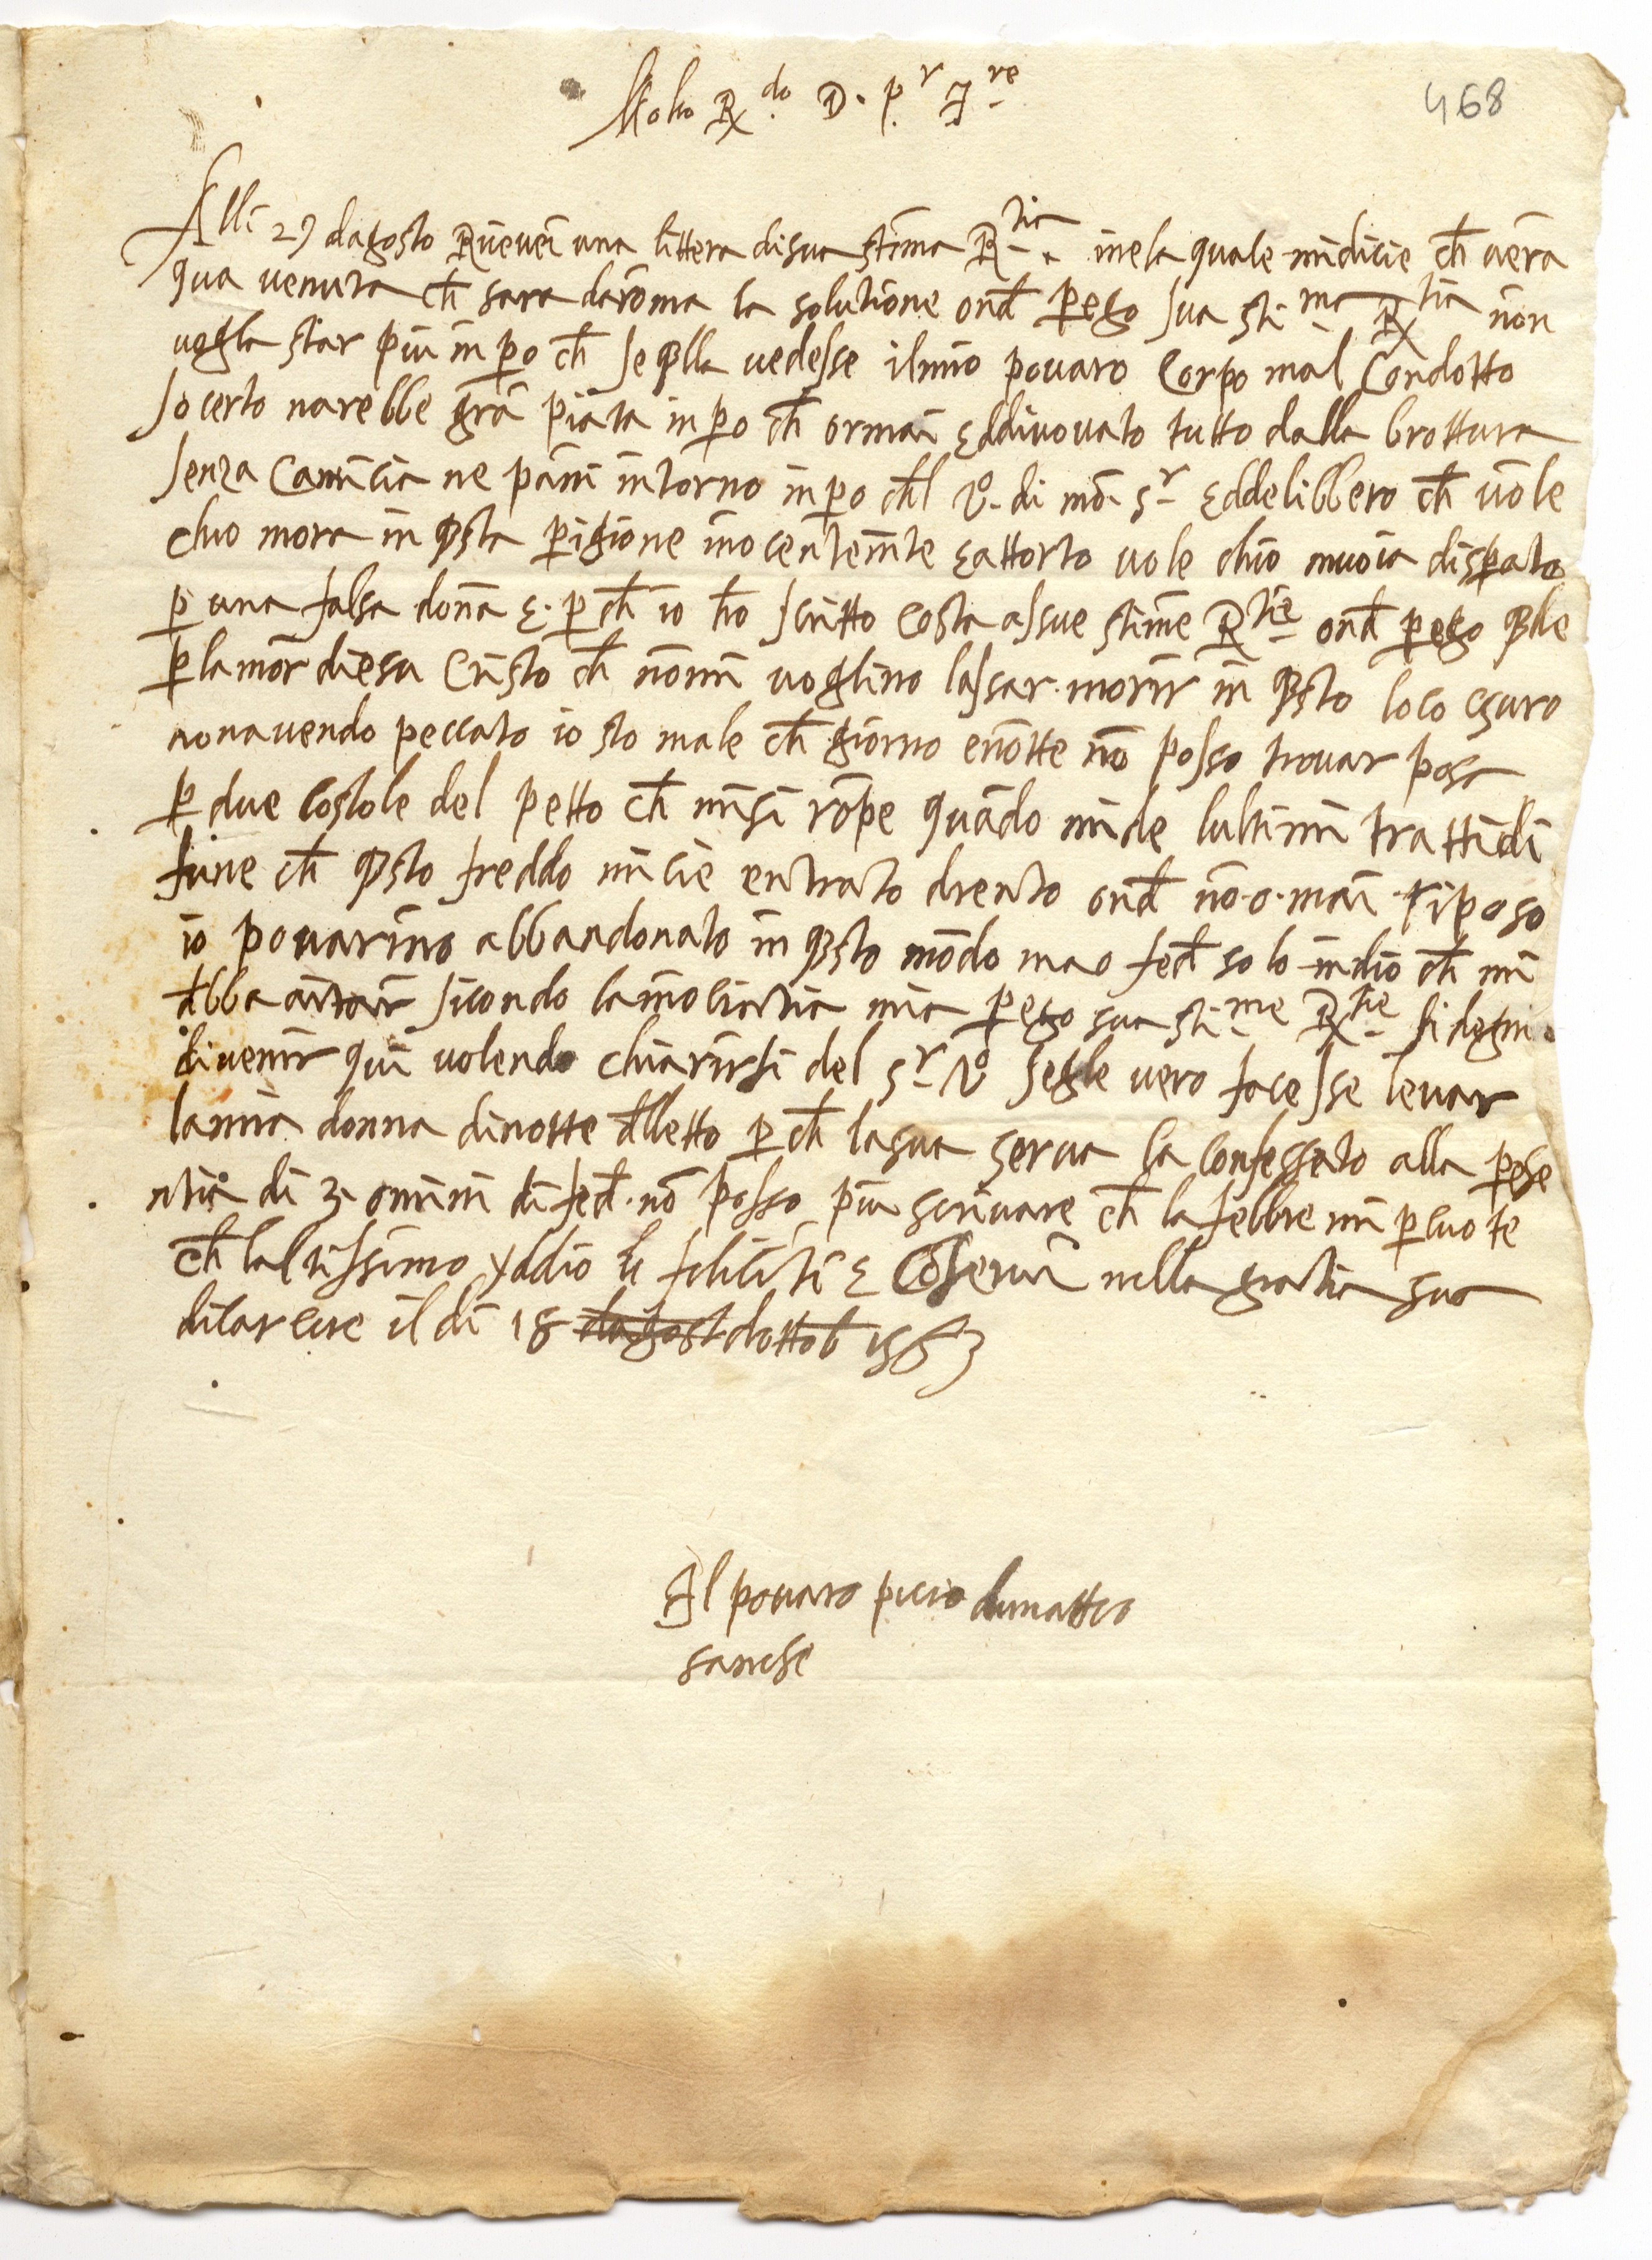 Molto R.do D. p.r I.re
468
Alli 27 dagosto Ricievei una littera di sua stima R.tia inela quale mi dicie ch̄ verra
qua venuta ch̄ sara da roma la solutione ond̄ p̄ego sua sti.ma R.tia non
vogla star piu in p̄o ch̄ se q̄lla vedesse il mio povaro corpo mal condotto
so certo narebbe grā piata in p̄o ch̄ ormai eddivovato tutto dalla brottura
senza camicia ne panni intorno in p̄o ch̄l V.o di mō s.r eddelibbero ch̄ vole
chio mora in q̄sta p̄igione inocentemte eattorto vole chio muoia disp̄ato
p̄ una falsa donā e p̄ch̄ io ho scritto costa assue stime R.tie ond̄ p̄ego q̄lle
p̄ lamor diesu Cristo ch̄ nomi voglino lassar morir in q̄sto loco oscuro
nonavendo peccato io sto male ch̄ giorno enotte nō posso trovar posa
p̄ due costole del petto ch̄ misi rōpe quādo mi de lultimi tratti di
fune ch̄ q̄sto freddo mi cie entrato drento ond̄ nō o mai riposo
io povarino abbandonato in q̄sto mōdo ma o fed̄ solo in dio ch̄ mi
d̄bba aitar sicondo la inocientia mia p̄ego sua sti.me R.tie si degni
di venir qui volendo chiarirsi del s.r V.o segle vero facesse levar
la mia donna di notte d̄lletto p̄ch̄ la sua serva la confessato alla p̄ese
ntia di 3 omini di fed̄ nō posso piu scrivare ch̄ la febbre mi p̄cuote
ch̄ laltissimo yddio le feliciti e cōservi nella gratia sua
di carcere il di 18 dagost dottob 1563
Il povaro picio
sanese